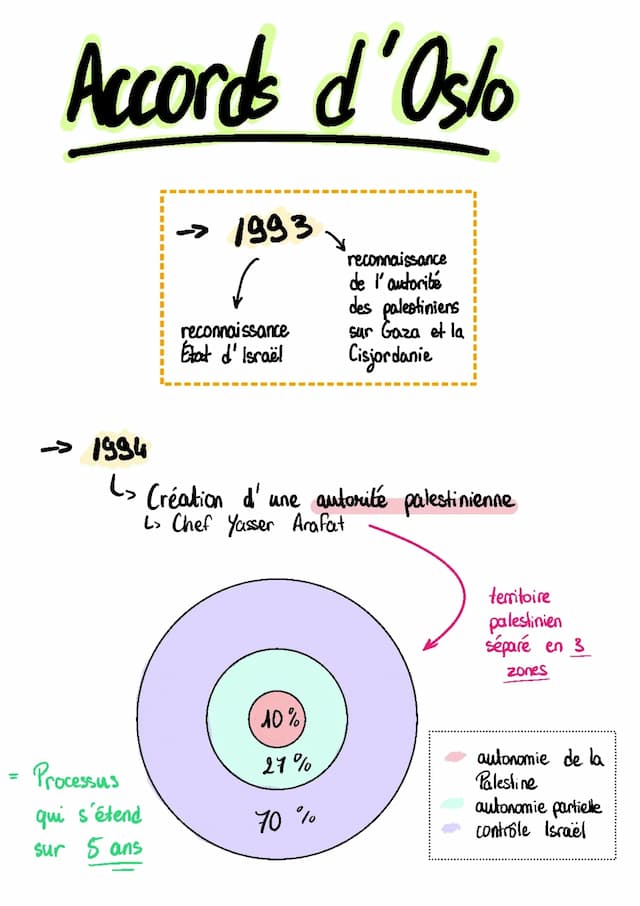 Accords d'Oslo
→ 1993
reconnaissance
État d'Israël
reconnaissance
de l'autorité
des palestiniens
sur Gaza et la
Cisjordanie
→ 1994
↳ Création d'une autorité palestinienne
↳ Chef Yasser Arafat
territoire
palestinien
séparé en 3
zones
10%
27%
70%
= Processus
qui s'étend
sur 5 ans
autonomie de la
Palestine
autonomie partielle
contrôle Israël